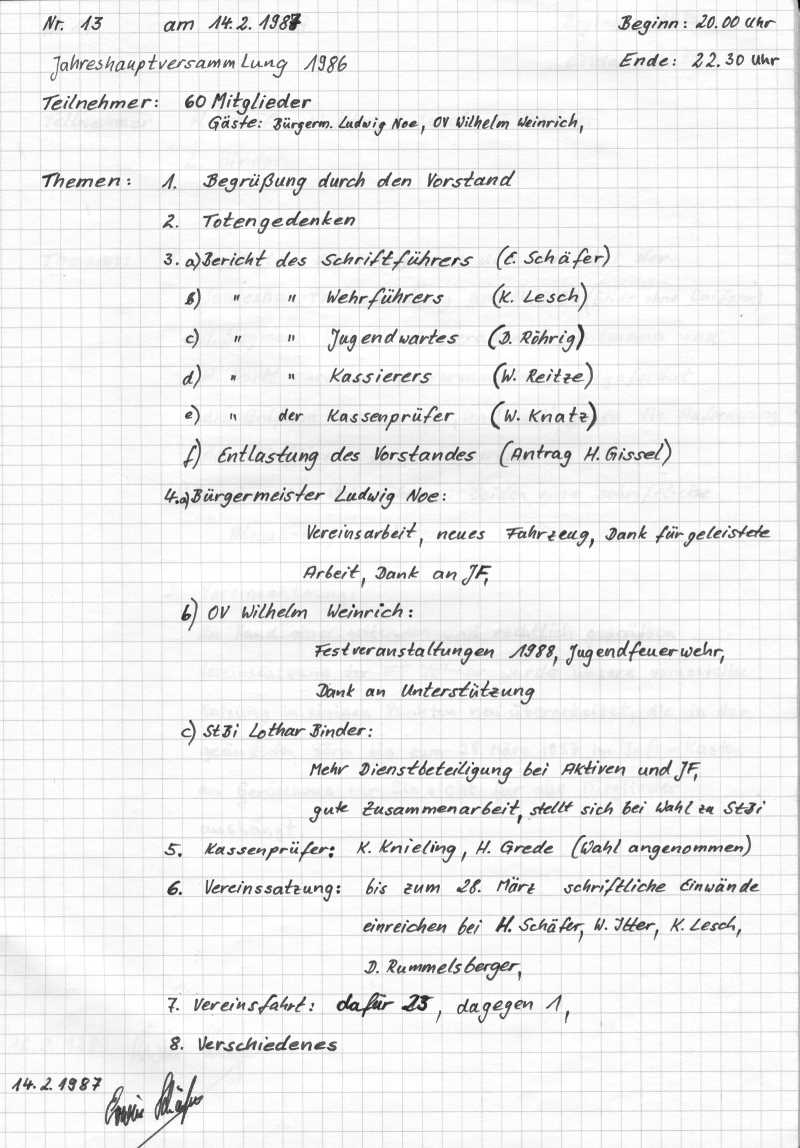 Nr. 13 am 14.2.1987 Beginn: 20.00 Uhr
Jahreshauptversammlung 1986 Ende: 22.30 Uhr
Teilnehmer: 60 Mitglieder
Gäste: Bürgerm. Ludwig Noe, OV Wilhelm Weinrich,
Themen: 1. Begrüßung durch den Vorstand
2. Totengedenken
3. a) Bericht des Schriftführers (E. Schäfer)
b) " " Wehrführers (K. Lesch)
c) " " Jugendwartes (D. Röhrig)
d) " " Kassierers (W. Reitze)
e) " der Kassenprüfer (W. Knatz)
f) Entlastung des Vorstandes (Antrag H. Gissel)
4.a) Bürgermeister Ludwig Noe:
Vereinsarbeit, neues Fahrzeug, Dank für geleistete
Arbeit, Dank an JF,
b) OV Wilhelm Weinrich:
Festveranstaltungen 1988, Jugendfeuerwehr,
Dank an Unterstützung
c) StBi Lothar Binder:
Mehr Dienstbeteiligung bei Aktiven und JF,
gute Zusammenarbeit, stellt sich bei Wahl zu StBi
5. Kassenprüfer: K. Knieling, H. Grede (Wahl angenommen)
6. Vereinssatzung: bis zum 28. März schriftliche Einwände
einreichen bei H. Schäfer, W. Itter, K. Lesch,
D. Rummelsberger,
7. Vereinsfahrt: dafür 23, dagegen 1,
8. Verschiedenes
14.2.1987